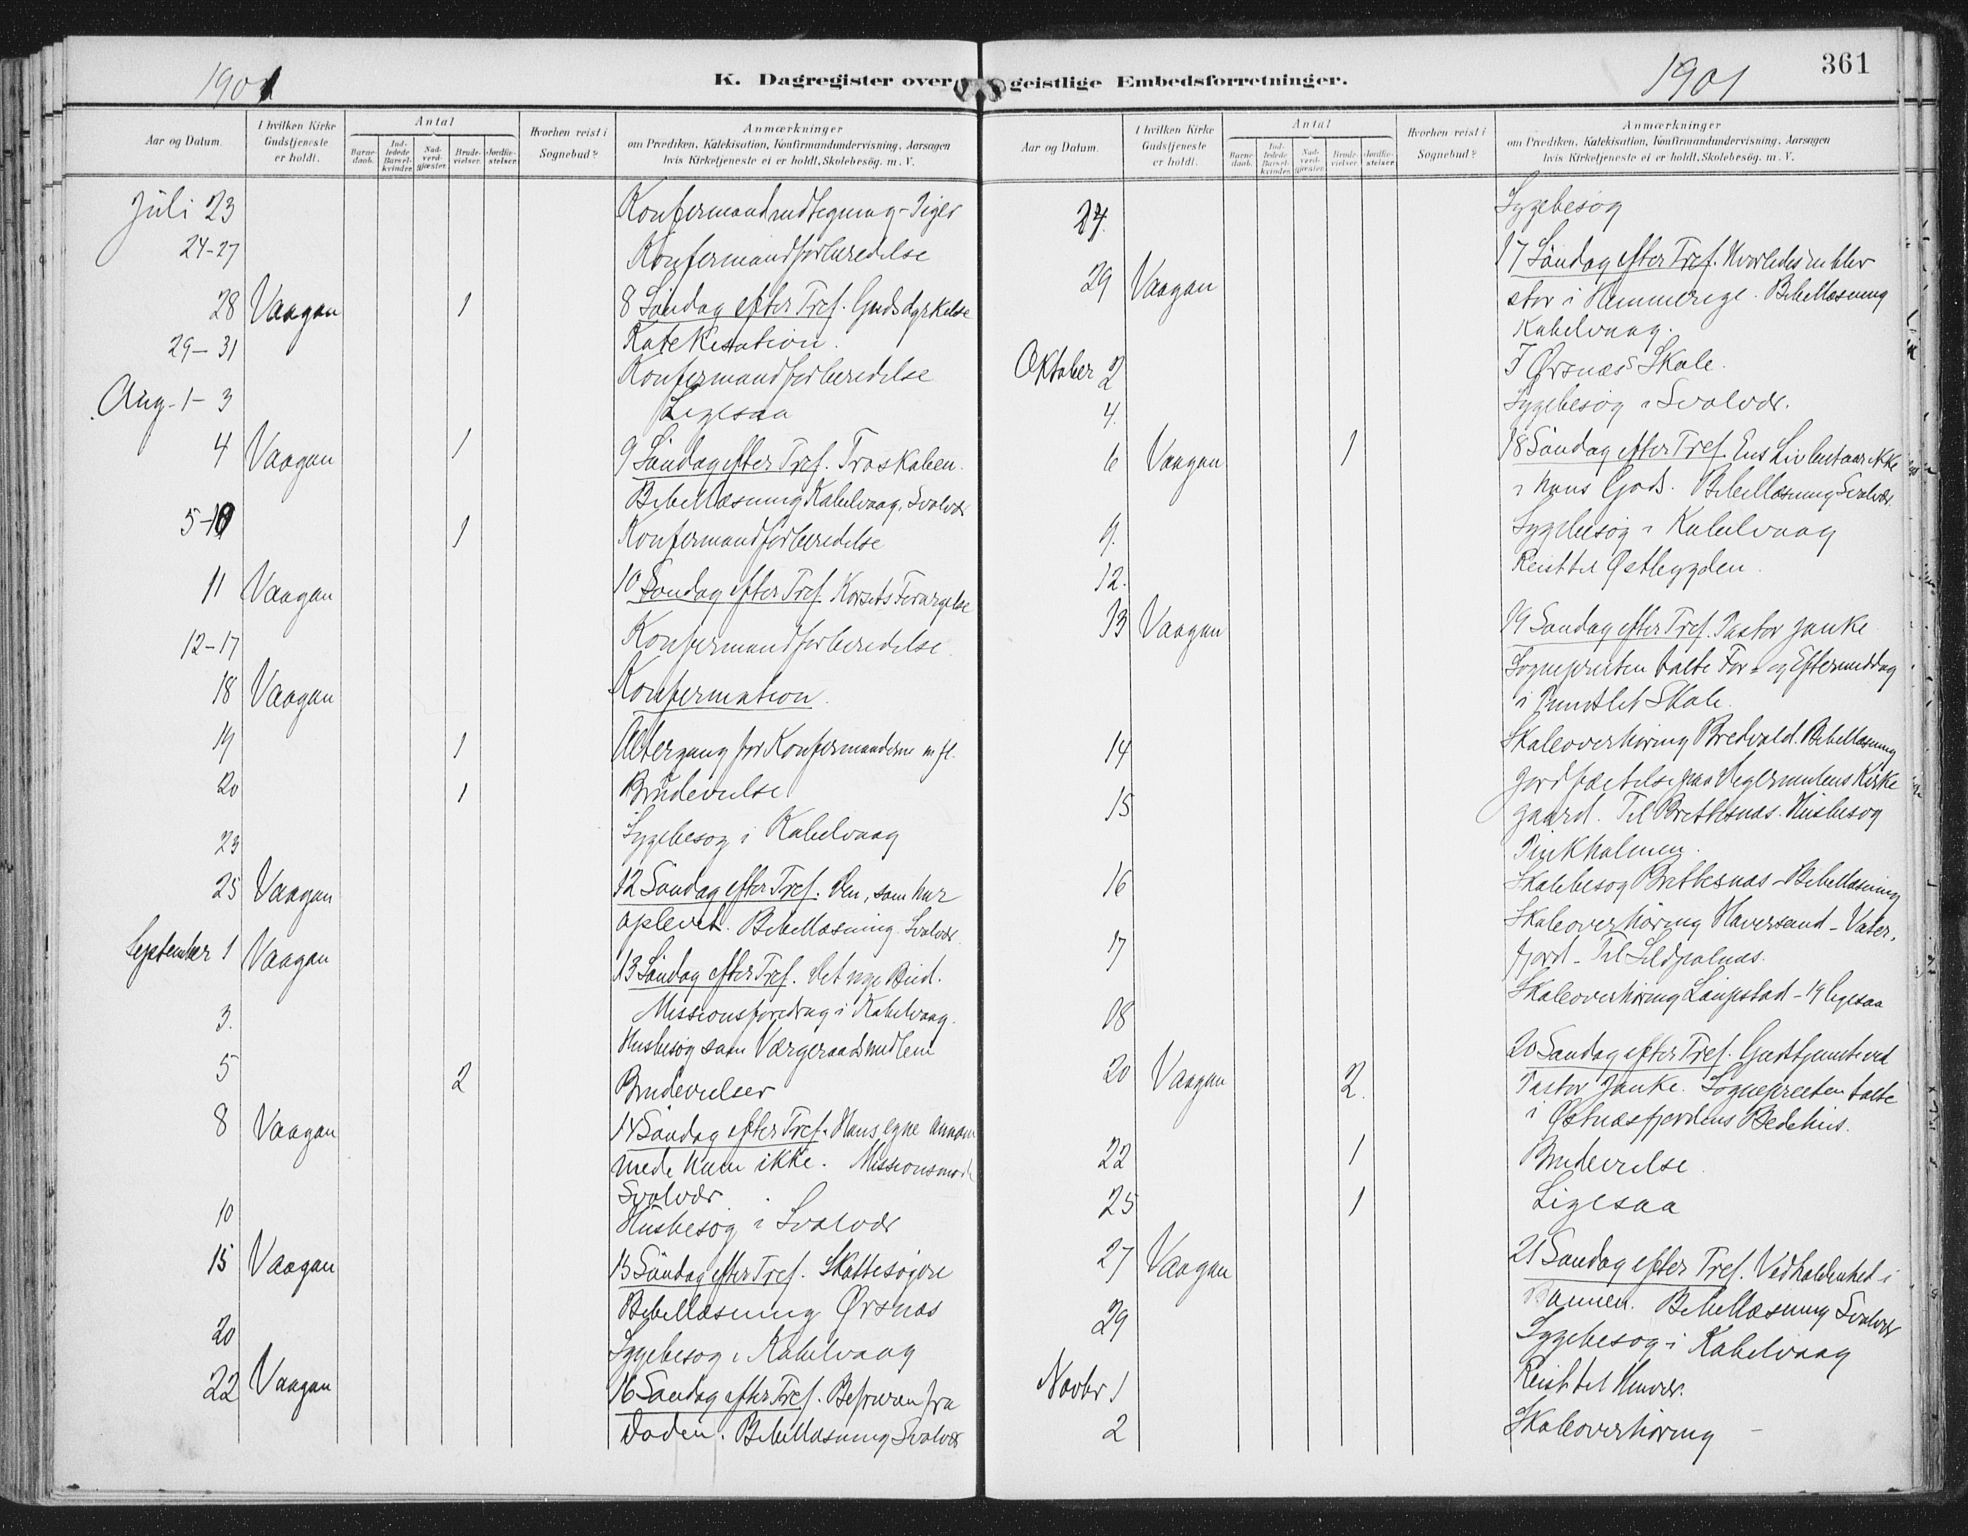 1901
K. Dagregister over
Aar og Datum.
I hvilken Kirke Gudstjeneste er holdt.
Antal
Barne-daab.
Ind-ledede Barsel-kvinder.
Nad-verd-gjæster.
Brude-vielser.
Jordfæ-stelser.
Hvorhen reist i Sognebud?
Anmærkninger
om Prædiken, Katekisation, Konfirmandundervisning, Aarsagen
hvis Kirketjeneste ei er holdt, Skolebesøg. m. V.
Juli 23 Konfermandmodtegning - Piger
24-27 Konfermandforberedelse
28 Vaagan 1 8 Søndag efter Tref. Gudsdyrkelse
Katekisation.
29-31 Konfermandforberedelse
Aug. 1-3 Ligesaa
4 Vaagan 1 9 Søndag efter Tref. Troskaben.
Bibellæsning Kabelvaag, Svolvær
5-10 1 Konfermandforberedelse
11 Vaagan 10 Søndag efter Tref Korsets Forargelse
12-17 Konfermandforberedelse.
18 Vaagan Konfermation.
19 1 Altergang for Konfermanderne m fl.
20 1 Brudevielse
23 Sygebesøg i Kabelvaag
25 Vaagan 12 Søndag efter Tref. Den, som har
oplevet. Bibellæsning. Svolvær.
September 1 Vaagan 13 Søndag efter Tref. Det nye Bud.
Missionsforedrag i Kabelvaag.
3. Husbesøg som Værgeraadsmedlem
5 2 Brudevielser
8 Vaagan 14 Søndag efter Tref. Hans egne annam
mede ham ikke. Missionsmøde
Svolvær
10 Husbesøg i Svolvær
15 Vaagan 15 Søndag efter Tref. Skattesøgere
Bibellæsning Ørsnæs
20 Sygebesøg i Kabelvaag
22 Vaagan 16 Søndag efter Tref. Befriran fra
Døden. Bibellæsning Svolvær
geistlige Embedsforretninger.
1901
361
Aar og Datum.
I hvilken Kirke Gudstjeneste er holdt.
Antal
Barne-daab.
Ind-ledede Barsel-kvinder.
Nad-verd-gjæster.
Brude-vielser.
Jordfæ-stelser.
Hvorhen reist i Sognebud?
Anmærkninger
om Prædiken, Katekisation, Konfirmandundervisning, Aarsagen
hvis Kirketjeneste ei er holdt, Skolebesøg. m. V.
24. Sygebesøg
29 Vaagan 17 Søndag efter Tref. Hvorledes en blev
stor i Himmerige. Bibellæsning
Kabelvaag.
Oktober 2 I Ørsnæs Skole.
4. Sygebesøg i Svolvær.
6 Vaagan 1 18 Søndag efter Tref Ens Liv bestaar ikke
i hans Gods. Bibellæsning Svolvær.
9. Sygebesøg i Kabelvaag
12. Reist til Østbygden.
13 Vaagan 19 Søndag efter Tref. Pastor Janke
Sognepresten talte For- og Eftermiddag
i Skole.
14 Skoleoverhøring Bredvold. Bibellæsning
15 Jordfæstelse paa Digermulens Kirke
gaard. Til Brettesnæs. Husbesøg
16 Skolebesøg Brettesnæs - Bibellæsning
17 Skoleoverhøring Haversand - Vater-
fjord - Til Sildpolnæs.
18 Skoleoverhøring Laupstad - 19 ligesaa
20 Vaagan 2. 20 Søndag efter Tref. Gudstjeneste ved
Pastor Janke. Sognepresten talte
i Østnæsfjordens Bedehus.
22 1 Brudevielse.
25 1 Ligesaa
27 Vaagan 21 Søndag efter Tref. Vedholdenhed i
Bønnen. Bibellæsning Svolvær
29 Sygebesøg i Kabelvaag
Novbr 1 Reist til
2 Skoleoverhøring